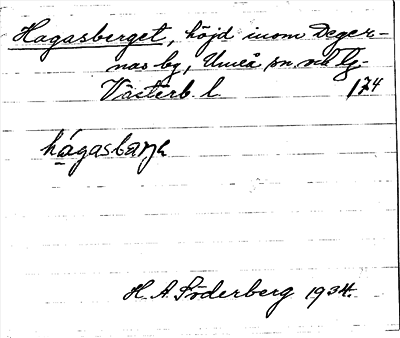 Hagasberget, höjd inom Deger-
näs by, Umeå sn och lg.
Västerb. l. 174
hágasbarjə
H. A. Söderberg 1934.